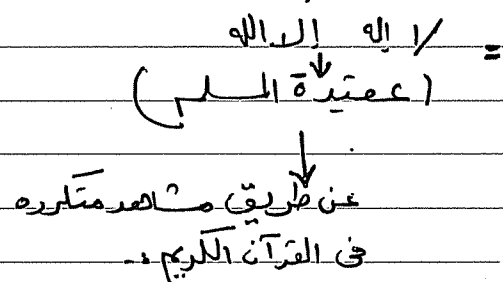 = لا إله إلا الله
(عقيدة المسلم)
عن طريق مشاهد متكرره
في القرآن الكريم :-